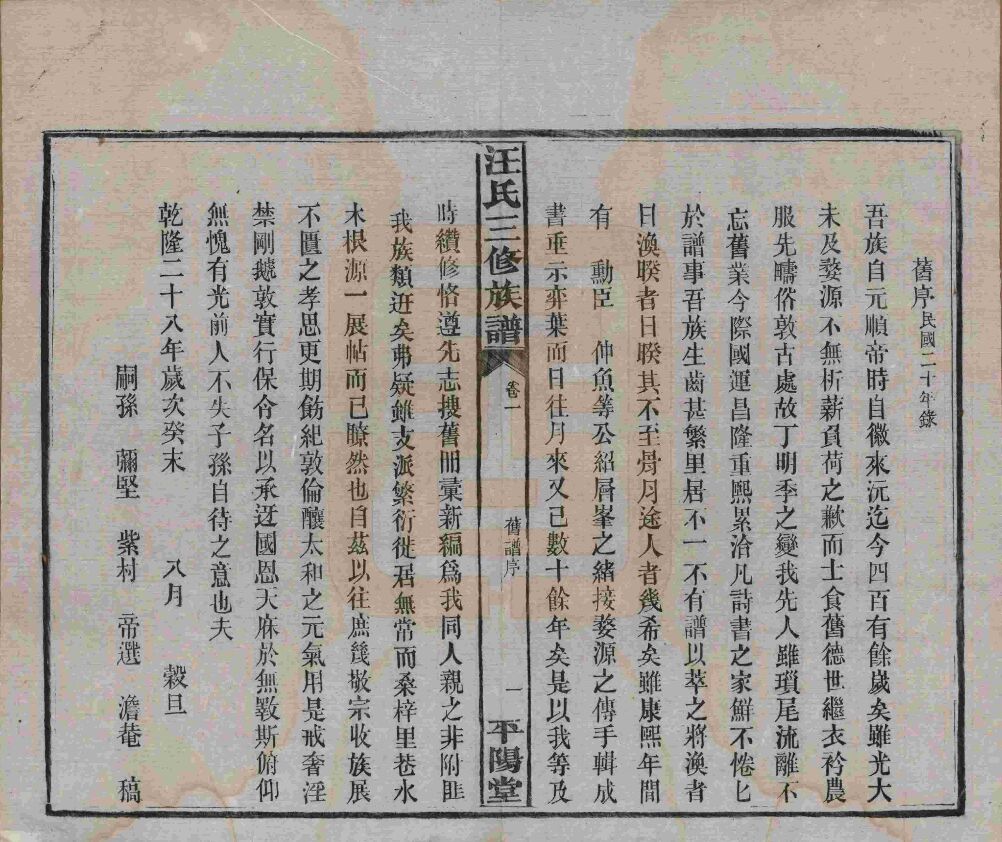 舊序民國二十年錄
吾族自元順帝時自徽來沅迄今四百有餘歲矣雖光大
未及婺源不無析薪負荷之歉而士食舊德世繼衣衿農
服先疇俗敦古處故丁明季之變我先人雖瑣尾流離不
忘舊業今際國運昌隆重熙累洽凡詩書之家鮮不惓匕
於譜事吾族生齒甚繁里居不一不有譜以萃之將渙者
日渙睽者日睽其不至骨月途人者幾希矣雖康熙年間
有　勳臣　伸魚等公紹層峯之緒接婺源之傳手輯成
書垂示弈葉而日往月來又已數十餘年矣是以我等及
汪氏三修族譜
卷一
舊譜序
一
平陽堂
時纘修恪遵先志搜舊冊彚新編爲我同人親之非附匪
我族類誑矣弗疑雖支派繁衍徙居無常而桑梓里巷水
木根源一展帖而已瞭然也自茲以往庶幾敬宗收族展
不匱之孝思更期飭紀敦倫釀太和之元氣用是戒奢淫
禁剛虣敦實行保令名以承迓國恩天庥於無斁斯俯仰
無愧有光前人不失子孫自待之意也夫
乾隆二十八年歲次癸未　八月　穀旦
嗣孫　彌堅　紫村　帝選　澹菴　稿